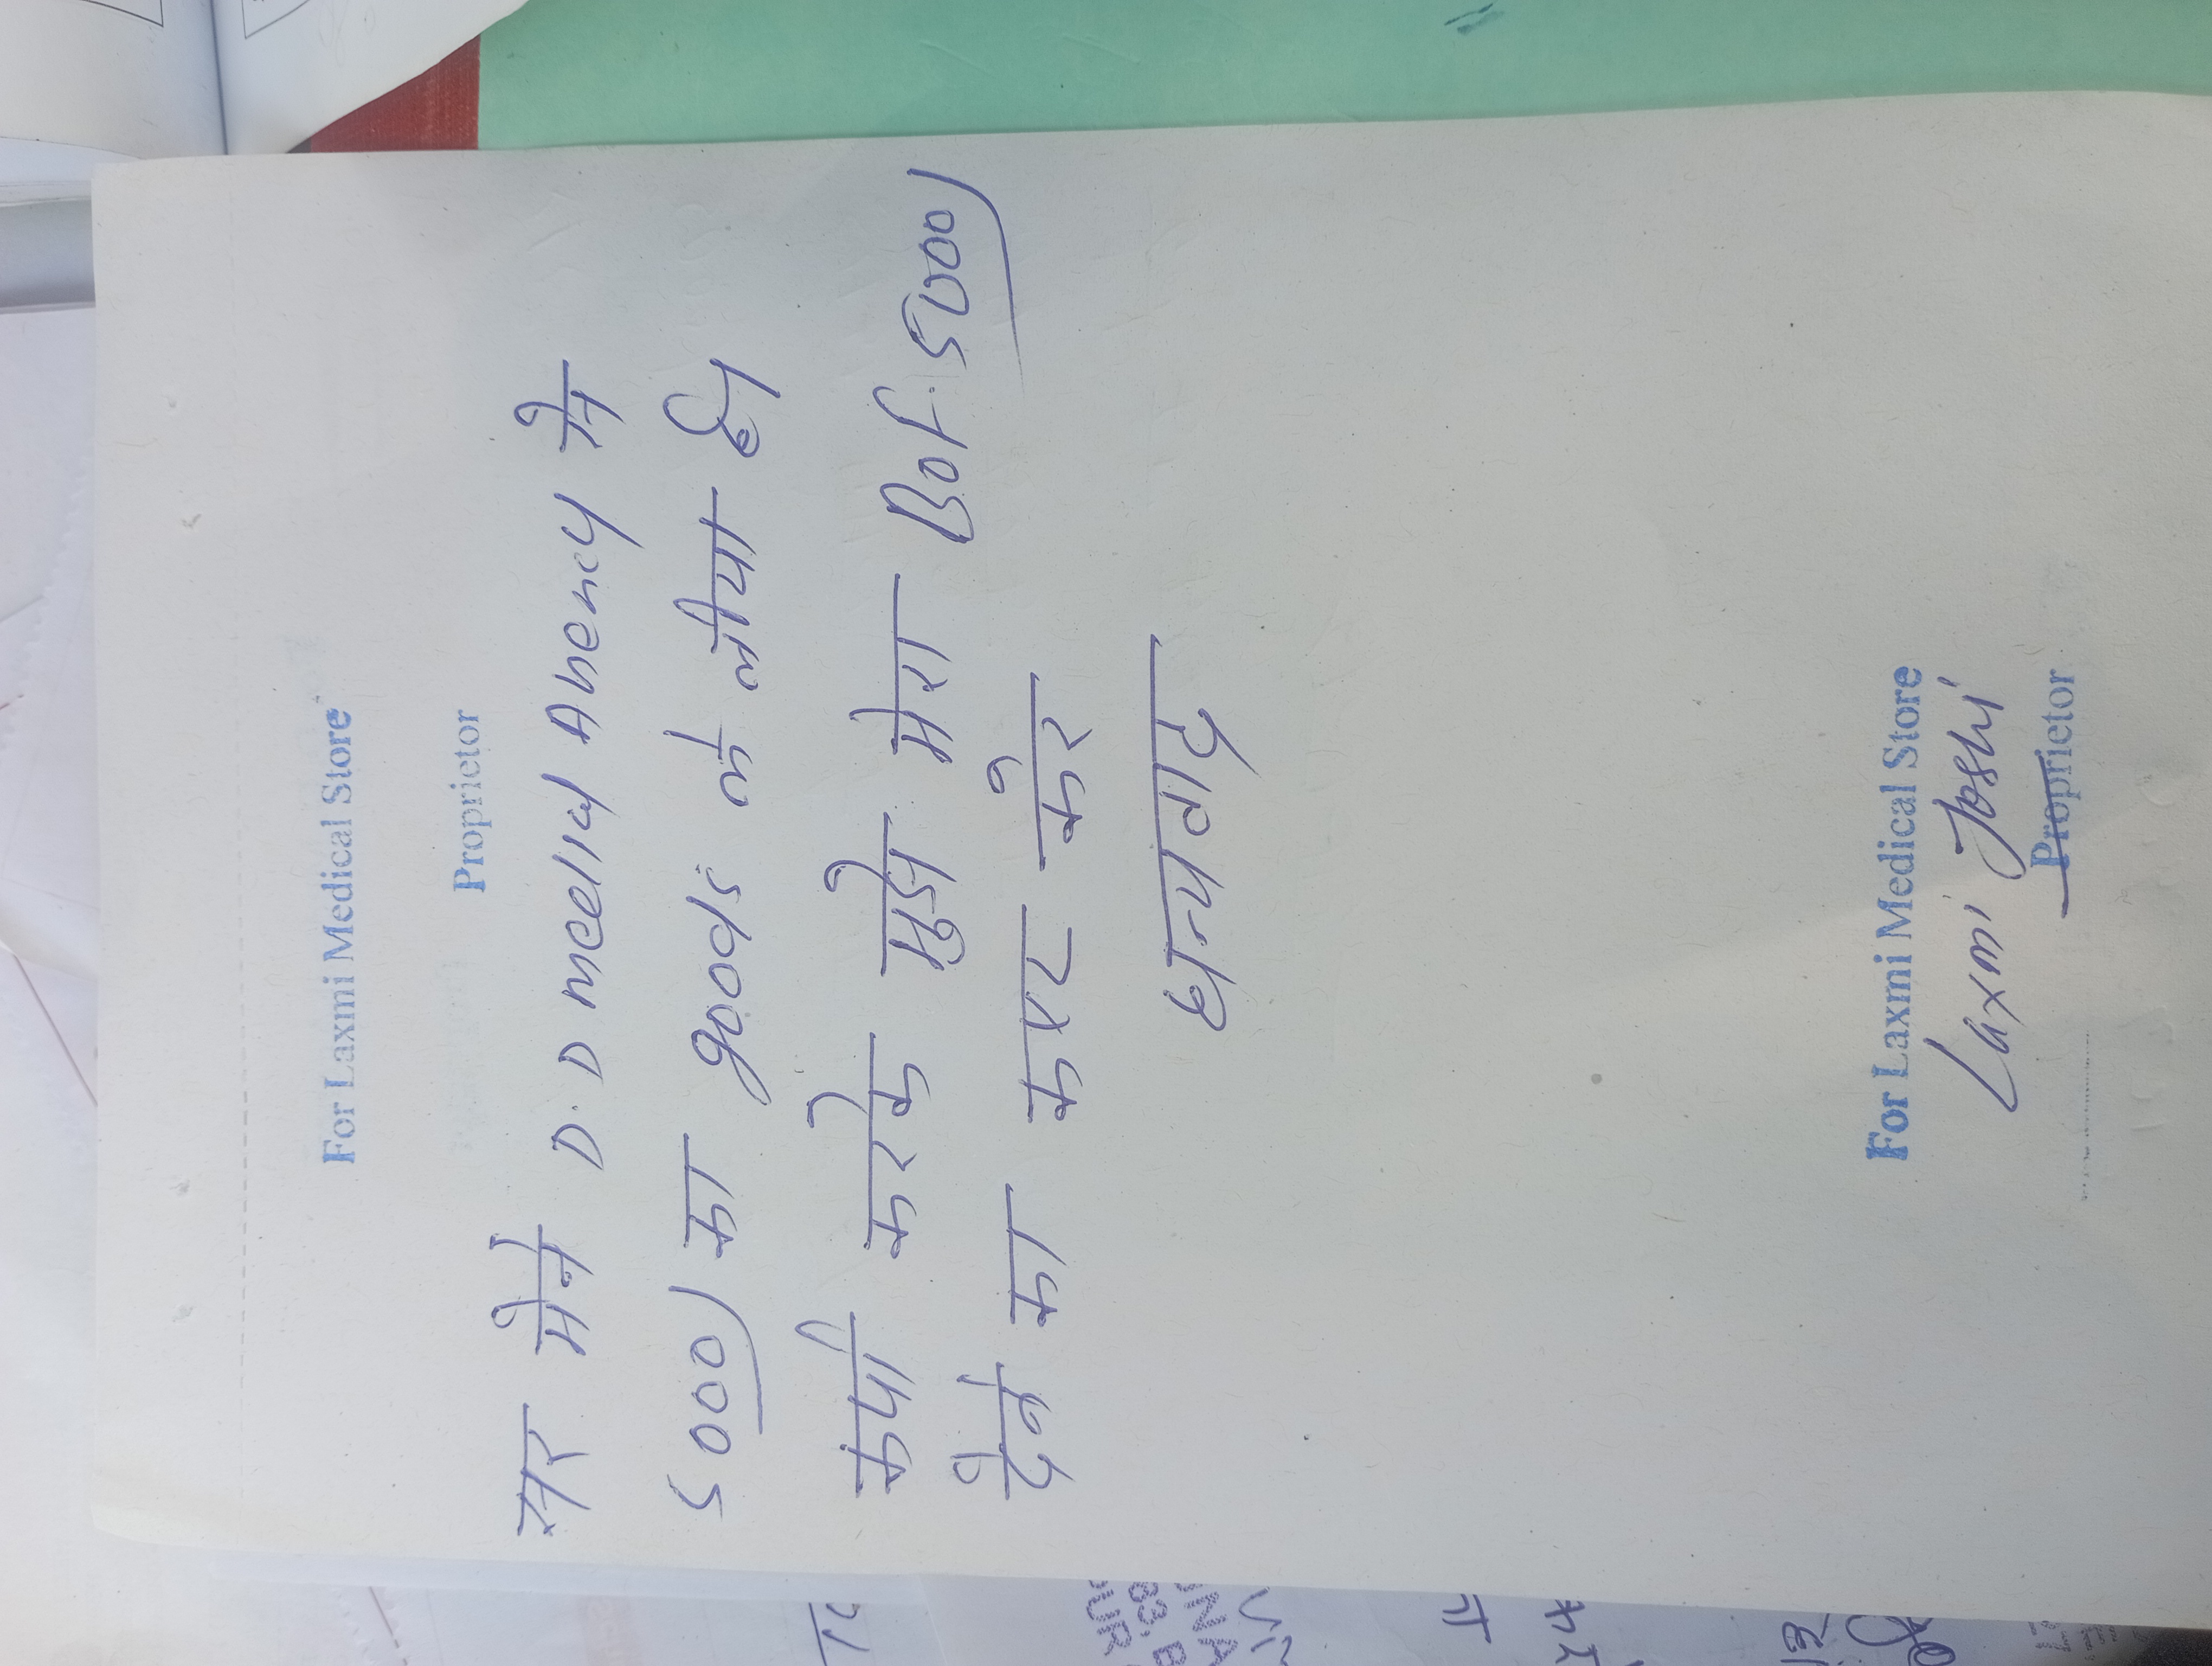 For Laxmi Medical Store
Proprietor
सर मैने D.D medical Ahency से
5000) का goods ले लीया है।
कृपा करके मुझे मेरा BOf. 5000)
देने का कष्ट करे
धन्यवाद
For Laxmi Medical Store
Laxmi Joshi
Proprietor